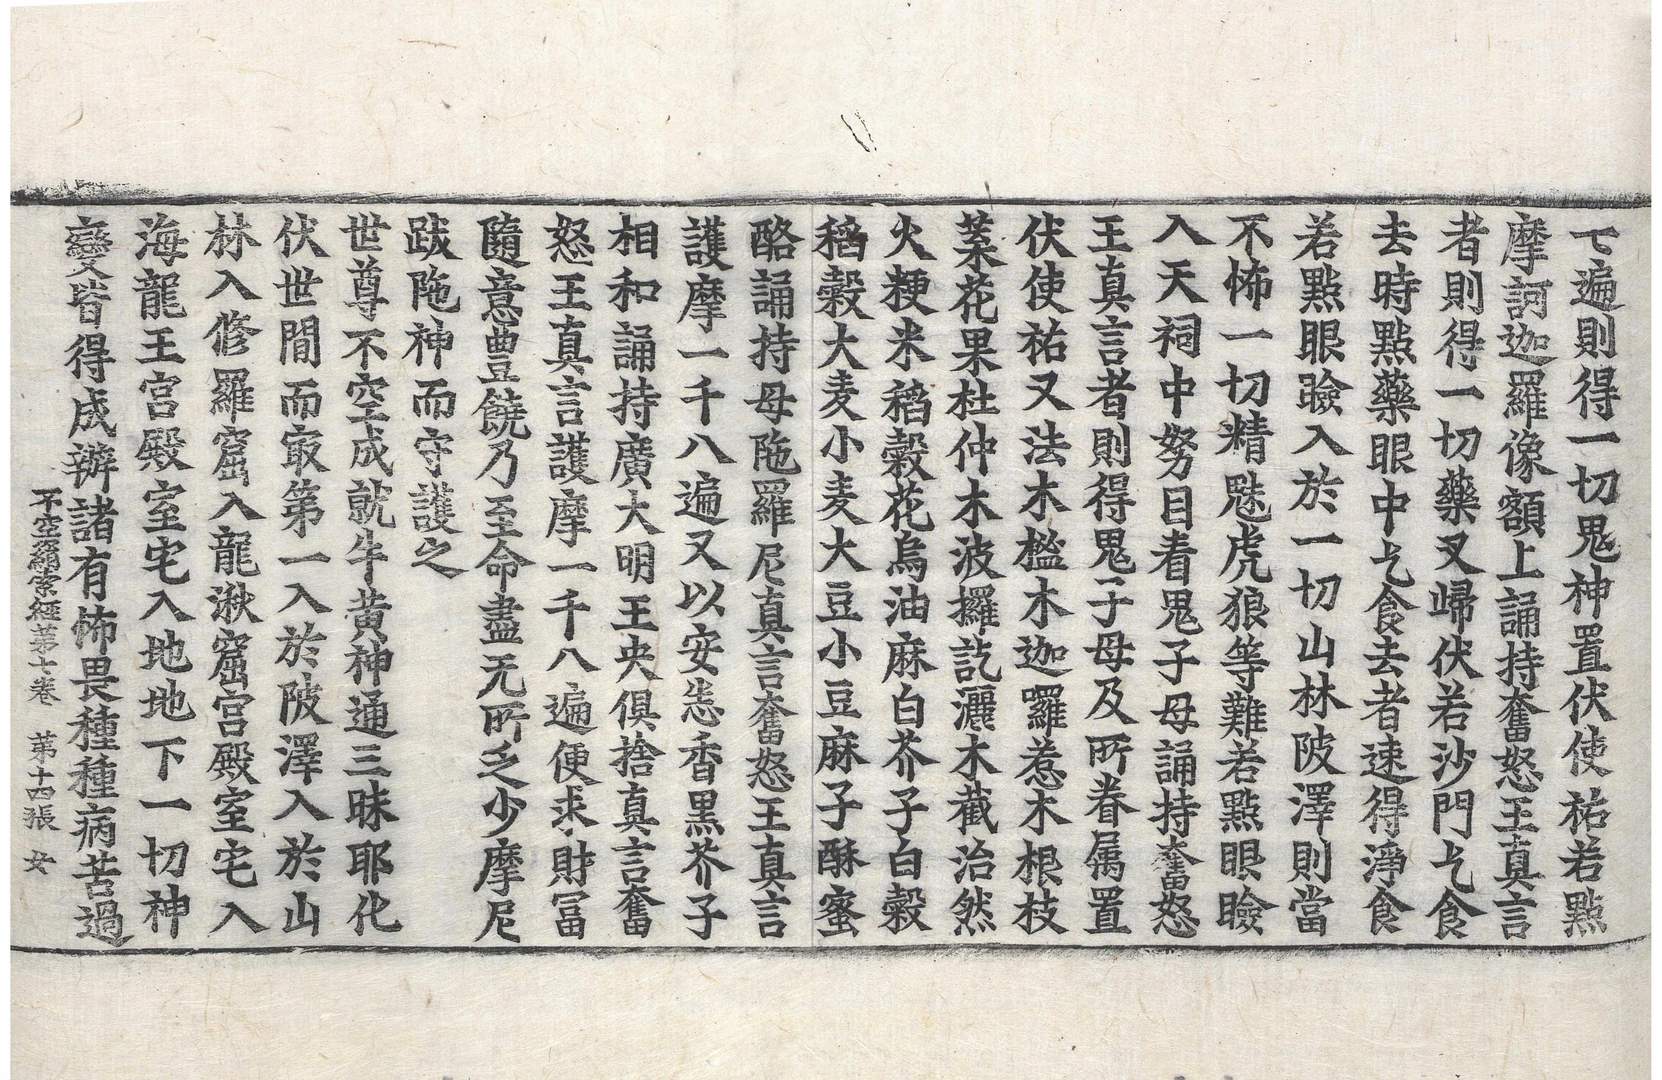 七遍則得一切鬼神置伏使祐若點
摩訶迦羅像額上誦持奮怒王真言
者則得一切藥叉歸伏若沙門乞食
去時點藥眼中乞食去者速得淨食
若點眼瞼入於一切山林陂澤則當
不怖一切精魅虎狼等難若點眼瞼
入天祠中努目看鬼子母誦持奮怒
王真言者則得鬼子母及所眷屬置
伏使祐又法木槛木迦囉惹木根枝
葉花果杜仲木波攞訖灑木截治然
火粳米稻穀花烏油麻白芥子白穀
稻穀大麦小麦大豆小豆麻子酥蜜
酪誦持母陁羅尼真言奮怒王真言
護摩一千八遍又以安悉香黑芥子
相和誦持廣大明王央俱捨真言奮
怒王真言護摩一千八遍便求財冨
隨意豊饒乃至命盡无所乏少摩尼
跋陁神而守護之
世尊不空成就牛黄神通三昧耶化
伏世間而㝡第一入於陂澤入於山
林入修羅窟入龍湫窟宮殿室宅入
海龍王宮殿室宅入地地下一切神
變皆得成辦諸有怖畏種種病苦過
不空羂索經第七卷　第十四張　女